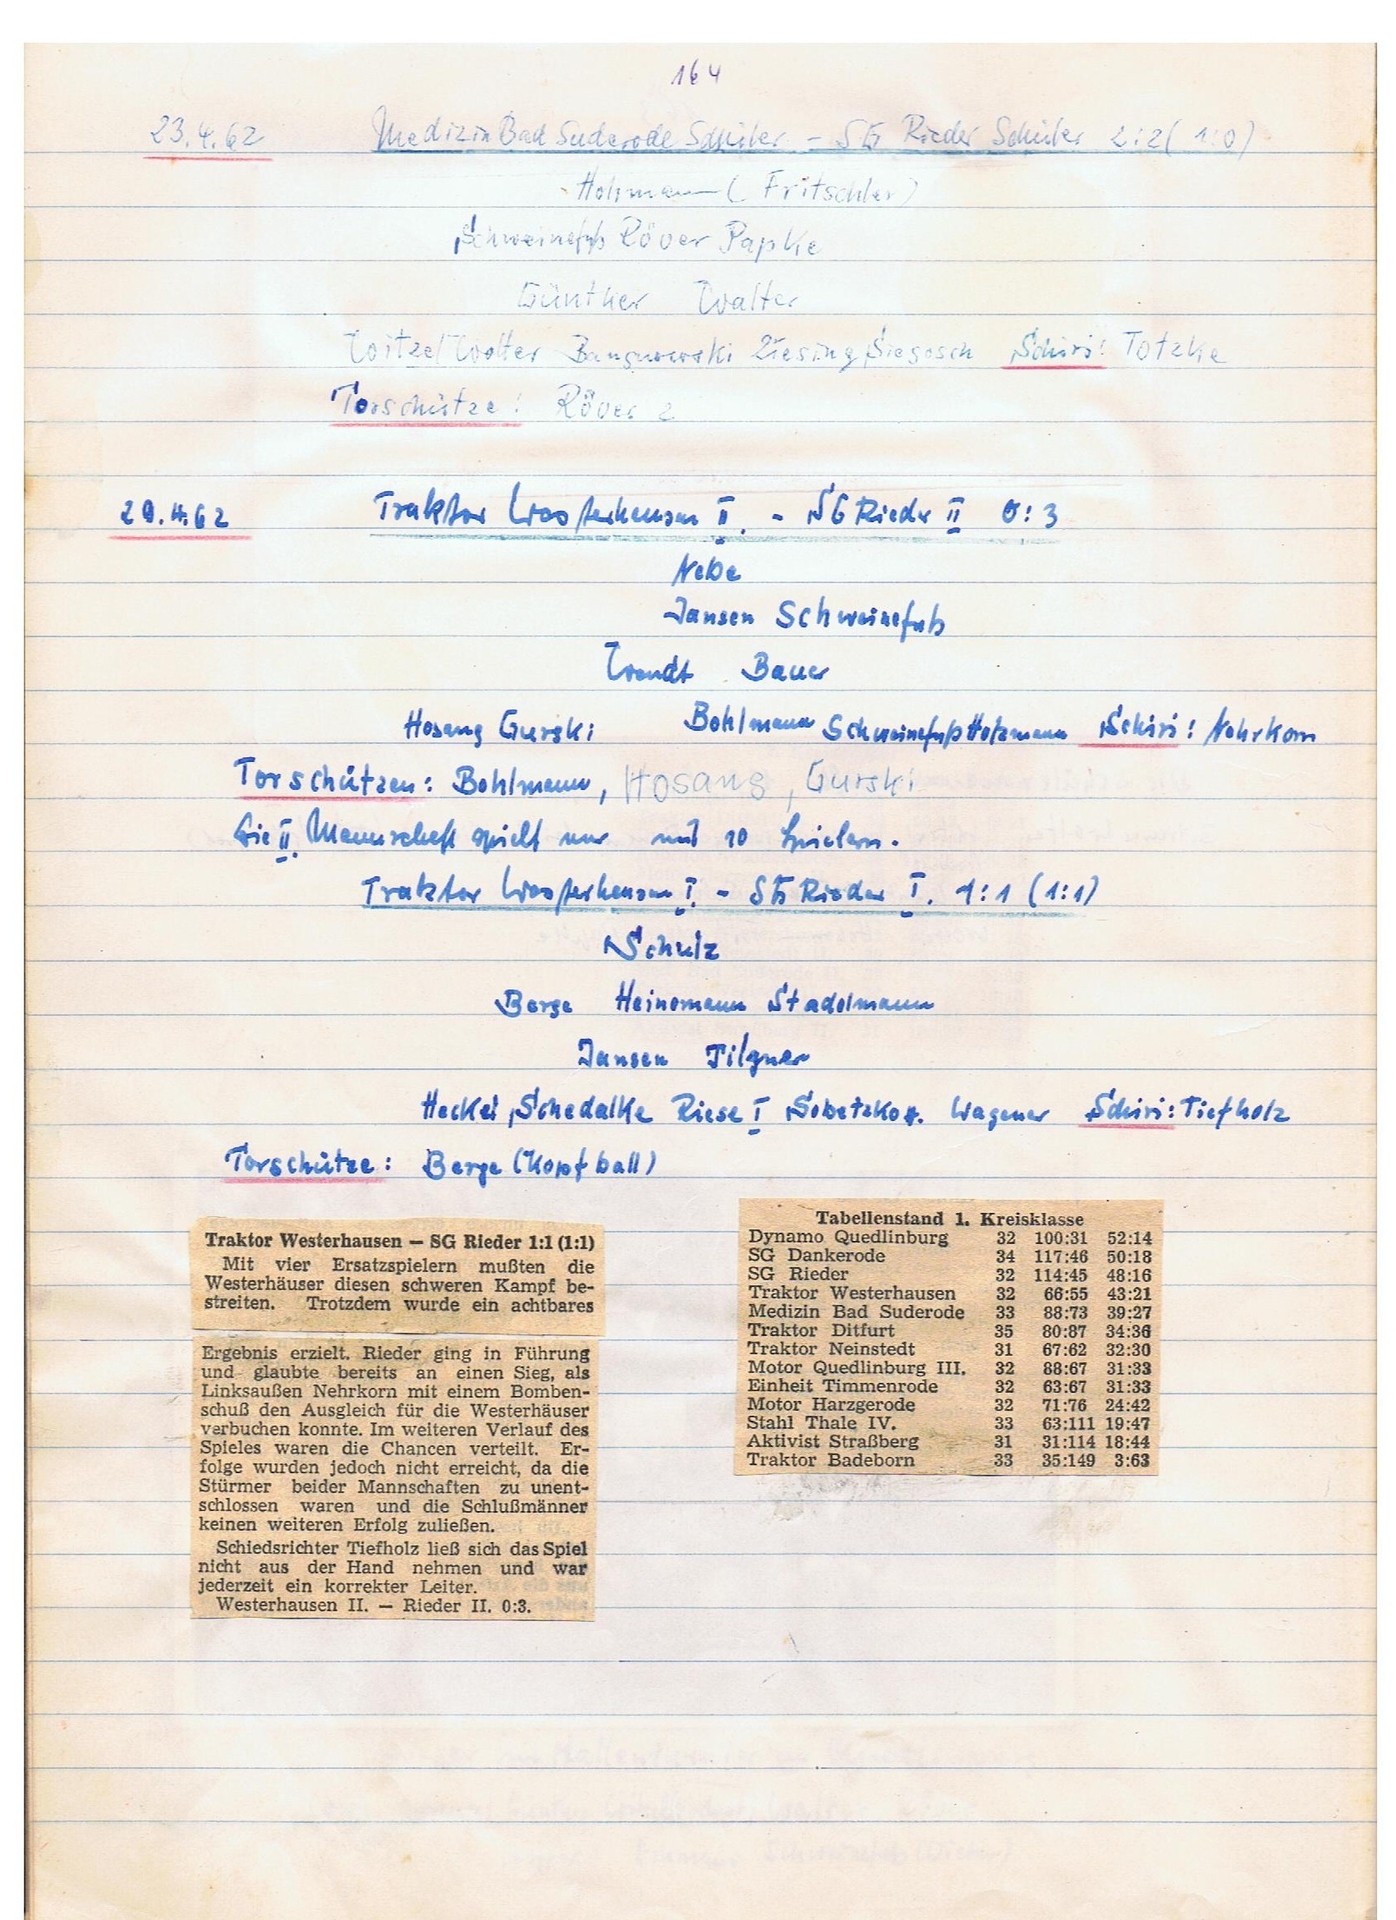 164
23.4.62 Medizin Bad Suderode Schüler - SG Rieder Schüler 2:2 (1:0)
(Fritschler)
Schweinefuß Röver Papke
Günther Walter
Witzel Wolter Ziesing Siegosch Schiri: Totzke
Torschütze: Röver 2
29.4.62 Traktor Westerhausen II. - SG Rieder II 0:3
Nebe
Jansen Schweinefuß
Wendt Bauer
Hosang Gurski Bohlmann Schweinefuß Holzmann Schiri: Nehrkorn
Torschützen: Bohlmann, Hosang, Gurski
Die II. Mannschaft spielt nur mit 10 Spielern.
Traktor Westerhausen I. - SG Rieder I. 1:1 (1:1)
Schulz
Berge Heinemann Stadelmann
Jansen Tilgner
Heckel Schedalke Riese I Sobetzko Wagener Schiri: Tiefholz
Torschütze: Berge (Kopfball)
Traktor Westerhausen — SG Rieder 1:1 (1:1)
Mit vier Ersatzspielern mußten die
Westerhäuser diesen schweren Kampf be-
streiten. Trotzdem wurde ein achtbares
Ergebnis erzielt. Rieder ging in Führung
und glaubte bereits an einen Sieg, als
Linksaußen Nehrkorn mit einem Bomben-
schuß den Ausgleich für die Westerhäuser
verbuchen konnte. Im weiteren Verlauf des
Spieles waren die Chancen verteilt. Er-
folge wurden jedoch nicht erreicht, da die
Stürmer beider Mannschaften zu unent-
schlossen waren und die Schlußmänner
keinen weiteren Erfolg zuließen.
Schiedsrichter Tiefholz ließ sich das Spiel
nicht aus der Hand nehmen und war
jederzeit ein korrekter Leiter.
Westerhausen II. — Rieder II. 0:3.
Tabellenstand 1. Kreisklasse
Dynamo Quedlinburg 32 100:31 52:14
SG Dankerode 34 117:46 50:18
SG Rieder 32 114:45 48:16
Traktor Westerhausen 32 66:55 43:21
Medizin Bad Suderode 33 88:73 39:27
Traktor Ditfurt 35 80:87 34:36
Traktor Neinstedt 31 67:62 32:30
Motor Quedlinburg III. 32 88:67 31:33
Einheit Timmenrode 32 63:67 31:33
Motor Harzgerode 32 71:76 24:42
Stahl Thale IV. 33 63:111 19:47
Aktivist Straßberg 31 31:114 18:44
Traktor Badeborn 33 35:149 3:63